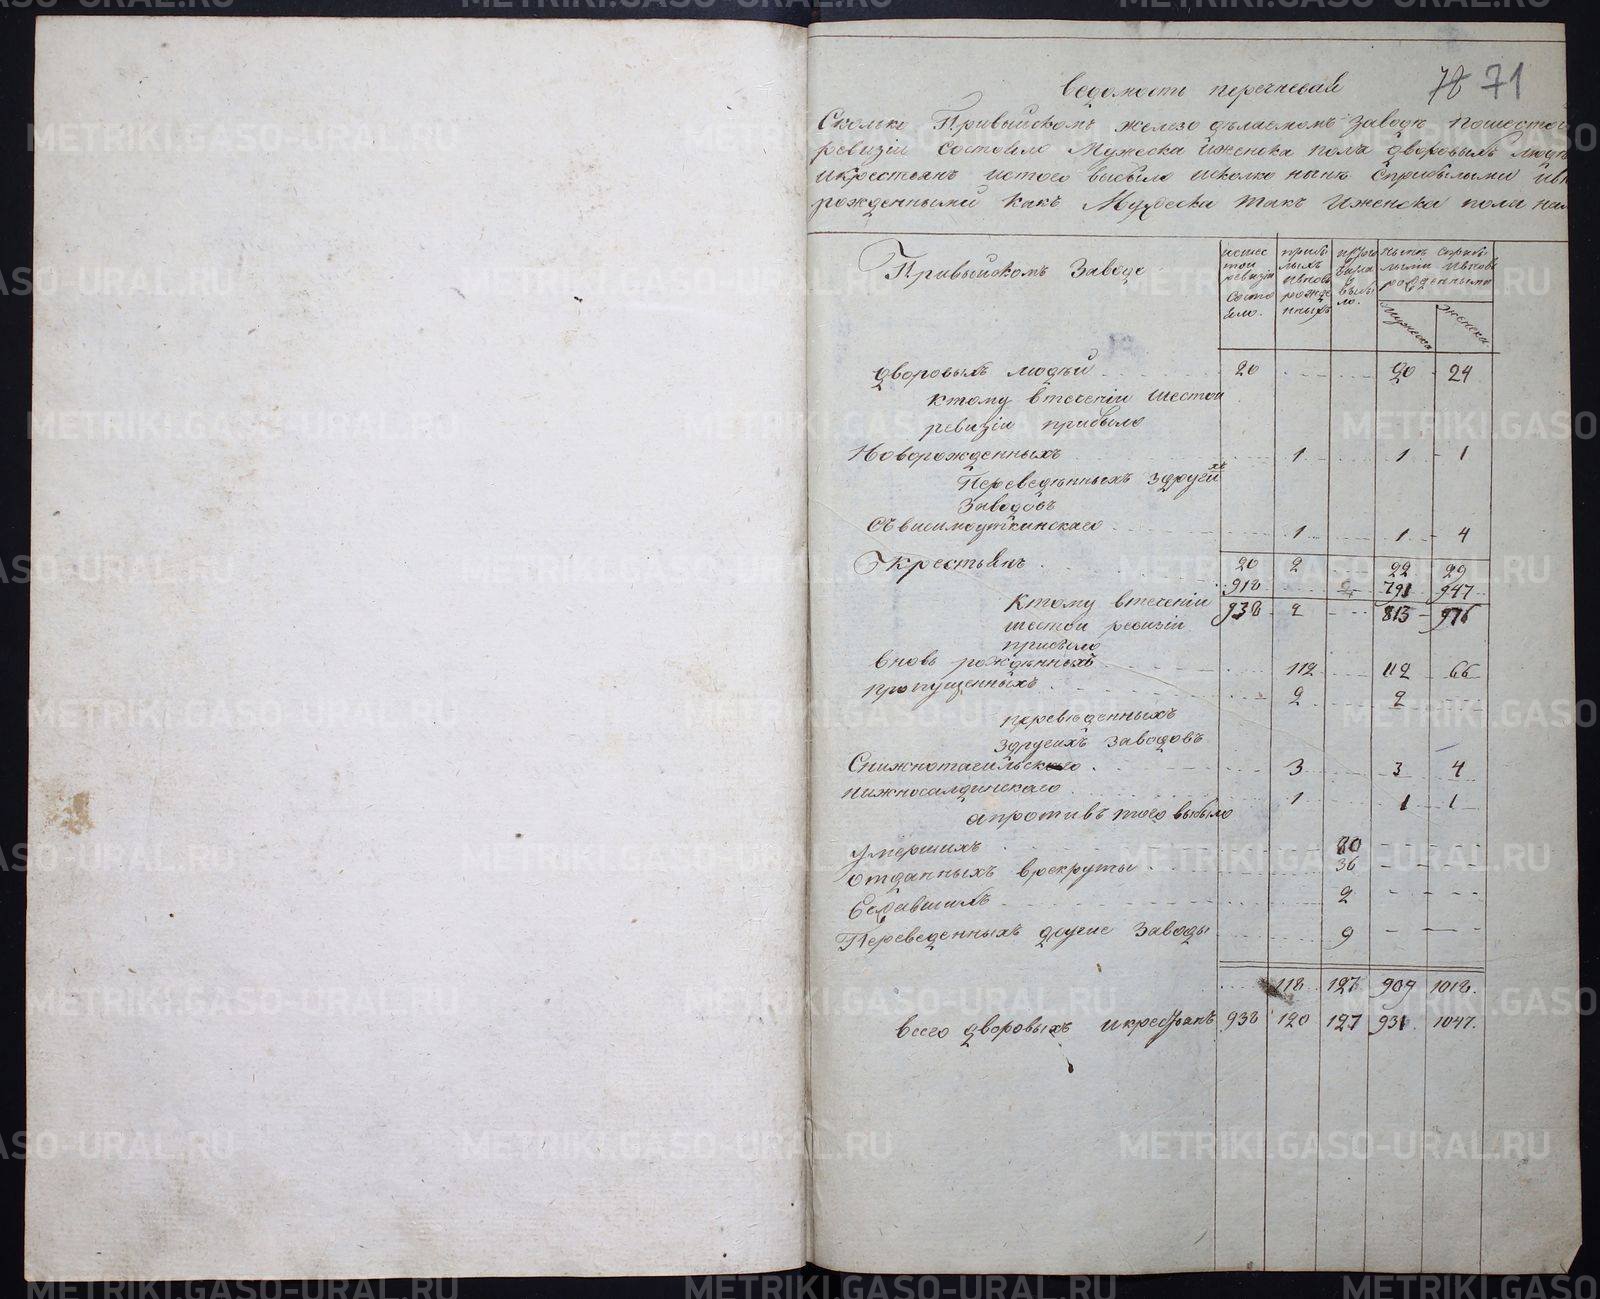 ведомость перечневая
78 71
Сколько Привыйскомъ железо делаемомъ заводѣ пошестой
ревизіи состояло Мужеска иженска пола дворовыхъ людей
икрестьянъ истого выбыло исколко нынѣ сприбылыми ивн
рожденными какъ Мужеска такъ иженска пола нал
Привыйскомъ Заводе
ишес
той
ревизіи
состо
яло.
прибы
лыхъ
ивновь
рожде
нныхъ
выбы
ло.
нынѣ сприбы
лыми ивновь
рожденными
Мужеска
женска
дворовыхъ людѣй 20 20 24
ктому втечении шестой
ревизіи прибыло
Новорожденныхъ 1 1 1
Переведѣнныхъ здругихъ
Заводовъ
Съ висимоуткинскаго 1 1 4
20 2 22 29
Крестьянъ 918 791 947
938 2 813 976
Ктому втечении
шестой ревизіи
прибыло
вновь рожденныхъ 112 112 66
пропущенныхъ 2 2
переведенныхъ
здругихъ заводовъ
Снижнотагильскаго 3 3 4
Нижносалдинскаго 1 1 1
апротивъ того выбыло
умершихъ 80
отданныхъ врекруты 36
бежавшихъ 2
Переведенныхъ другие Заводы 9
118 127 909 1018.
всего дворовыхъ икрестьянъ 938 120 127 931 1047.
METRIKI.GASO-URAL.RU